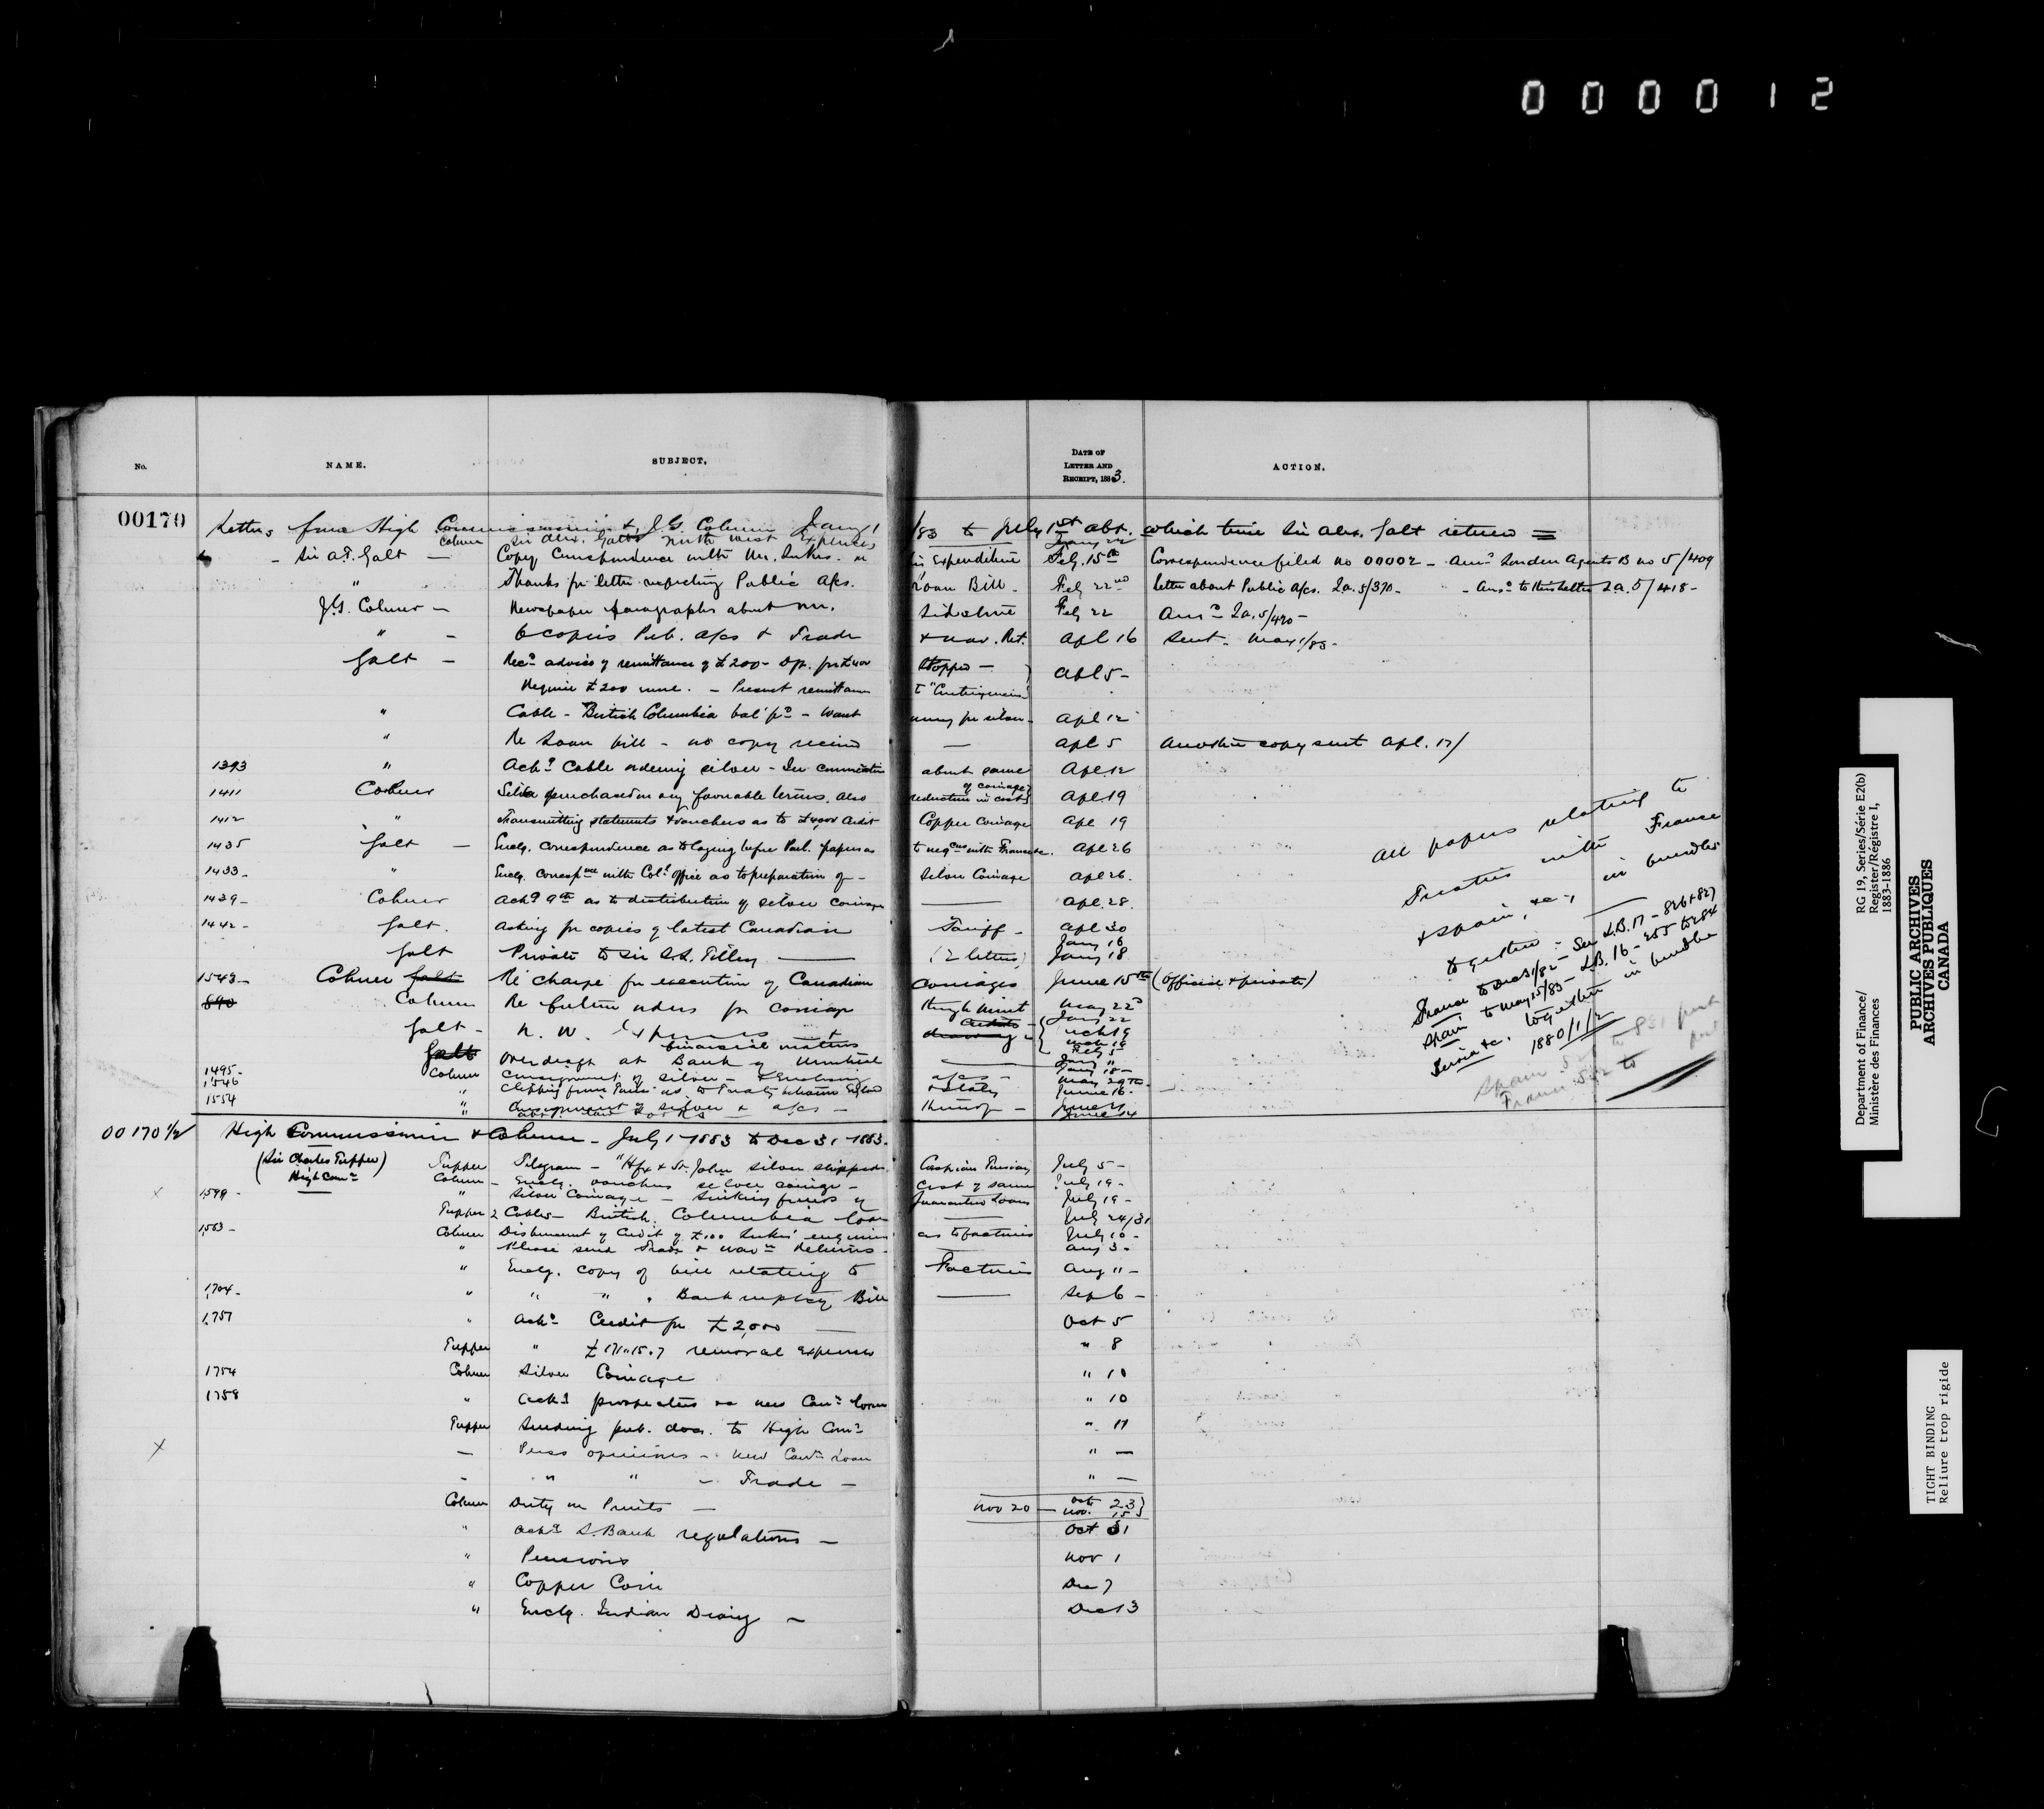 000012
No.
NAME.
SUBJECT,
DATE OF
LETTER AND
RECEIPT, 1883.
ACTION.
00170 Letters from High Commissioner & J.G. Colmer Jany 1/83 to July 1st abt. which time Sir Alex. Galt returned
Colmer Sir Alex. Galt's North West Expenses Jany 22
- Sir A.T. Galt - Copy Correspondence with Mr. in Expenditure Feb. 15th Correspondence filed no 00002 - Ansd London Agents B no 5/409
" Thanks for letter respecting Public A/cs. Loan Bill - Feby 22nd letter about Public A/cs. La. 5/370 - - Ansd to this letter La. 5/418 -
J.G. Colmer - Newspaper paragraphs about Mr. Feby 22 Ansd La. 5/490 -
" - 6 copies Pub. A/cs & Trade & Nav. Ret. Apl 16 Sent. May 1/83 -
Galt - Recd advice of remittance of £200 - Dft. for £400 stopped - Apl 5 -
Require £200 more. - Present remittance to "Contingencies"
" Cable - British Columbia bal' pd - Want money for silver - Apl 12
" Re Loan bill - no copy received — Apl 5 Another copy sent Apl. 17/
1393 " Ackg Cable ordering silver - In connection about same Apl 12
1411 Colmer Silver purchased on very favorable terms. Also reduction in cost of coinage Apl 19
1412 " Transmitting statements & vouchers as to £4,000 credit Copper Coinage Apl 19
1435 Galt - Enclg. Correspondence as to laying before Parl. papers as to negons with France &c. Apl 26
1433 - " Enclg. Correspnce with Col. Office as to preparation of - Silver Coinage Apl 26.
1439 - Colmer Ackg 9th as to distribution of silver coinage — Apl. 28.
1442 - Galt. Asking for copies of latest Canadian Tariff - Apl 30
Galt Private to Sir S.L. Tilley — (2 letters) Jany 16 Jany 18
1543 - Colmer Galt Re charge for execution of Canadian Coinages June 15th (Official & private)
890 Colmer Re future orders for coinage through Mint May 22d
Galt - N. W. Expenses Jany 22
Galt financial matters Mch 19
Overdraft at Bank of Montreal
1495 - Colmer Consignment of silver - A/cs May 29th -
1546 " Clipping from & Italy June 16 -
1554 " Consignment of silver & a/cs -
All papers relating to
Treaties with France
& Spain, &c., in bundles
together - See L.B. 17 - 826 & 827
France to Dec 31/82 -
Spain to May 15/83 - L.B. 16 - 255 to 284
Servia &c. together in bundle
1880/1/2
00170½ High Commissioner & Colmer - July 1 - 1883 to Dec 31 - 1883.
(Sir Charles Tupper)
High Comr
Tupper Telegram - "Hfx & St. John silver shipped Caspian Parisian July 5 -
Colmer - Enclg. vouchers silver coinage - Cost of same July 19 -
1599 - " Silver Coinage - Sinking funds of Guarantee Loans July 19 -
Tupper 2 Cables - British Columbia loan — July 24/31
1563 - Colmer Disbursement of Credit of £100 enquiries as to factories July 10 -
" Please send Trade & Navn Returns - Aug 3 -
" Enclg. copy of bill relating to Factories Aug 11 -
1704 - " " " " Bankruptcy Bill — Sep 6 -
1757 " Ackg Credit for £2,000 — Oct 5
Tupper " £171.15.7 removal expenses " 8
1754 Colmer Silver Coinage " 10
1758 " Ackg prospectus re new Cann loan " 10
Tupper Sending pub. docs. to High Comr " 11
— Press opinions - New Cann Loan " —
- " " - Trade - " —
Colmer Duty on Prints - Nov 20 — Oct 23 Nov. 15
" Ackg S. Bank regulations - Oct 31
" Pensions Nov 1
" Copper Coin Dec 7
" Enclg. Indian Diary - Dec 13
Department of Finance/
Ministère des Finances
RG 19, Series/Série E2(b)
Register/Régistre I,
1883-1886
PUBLIC ARCHIVES
ARCHIVES PUBLIQUES
CANADA
TIGHT BINDING
Reliure trop rigide